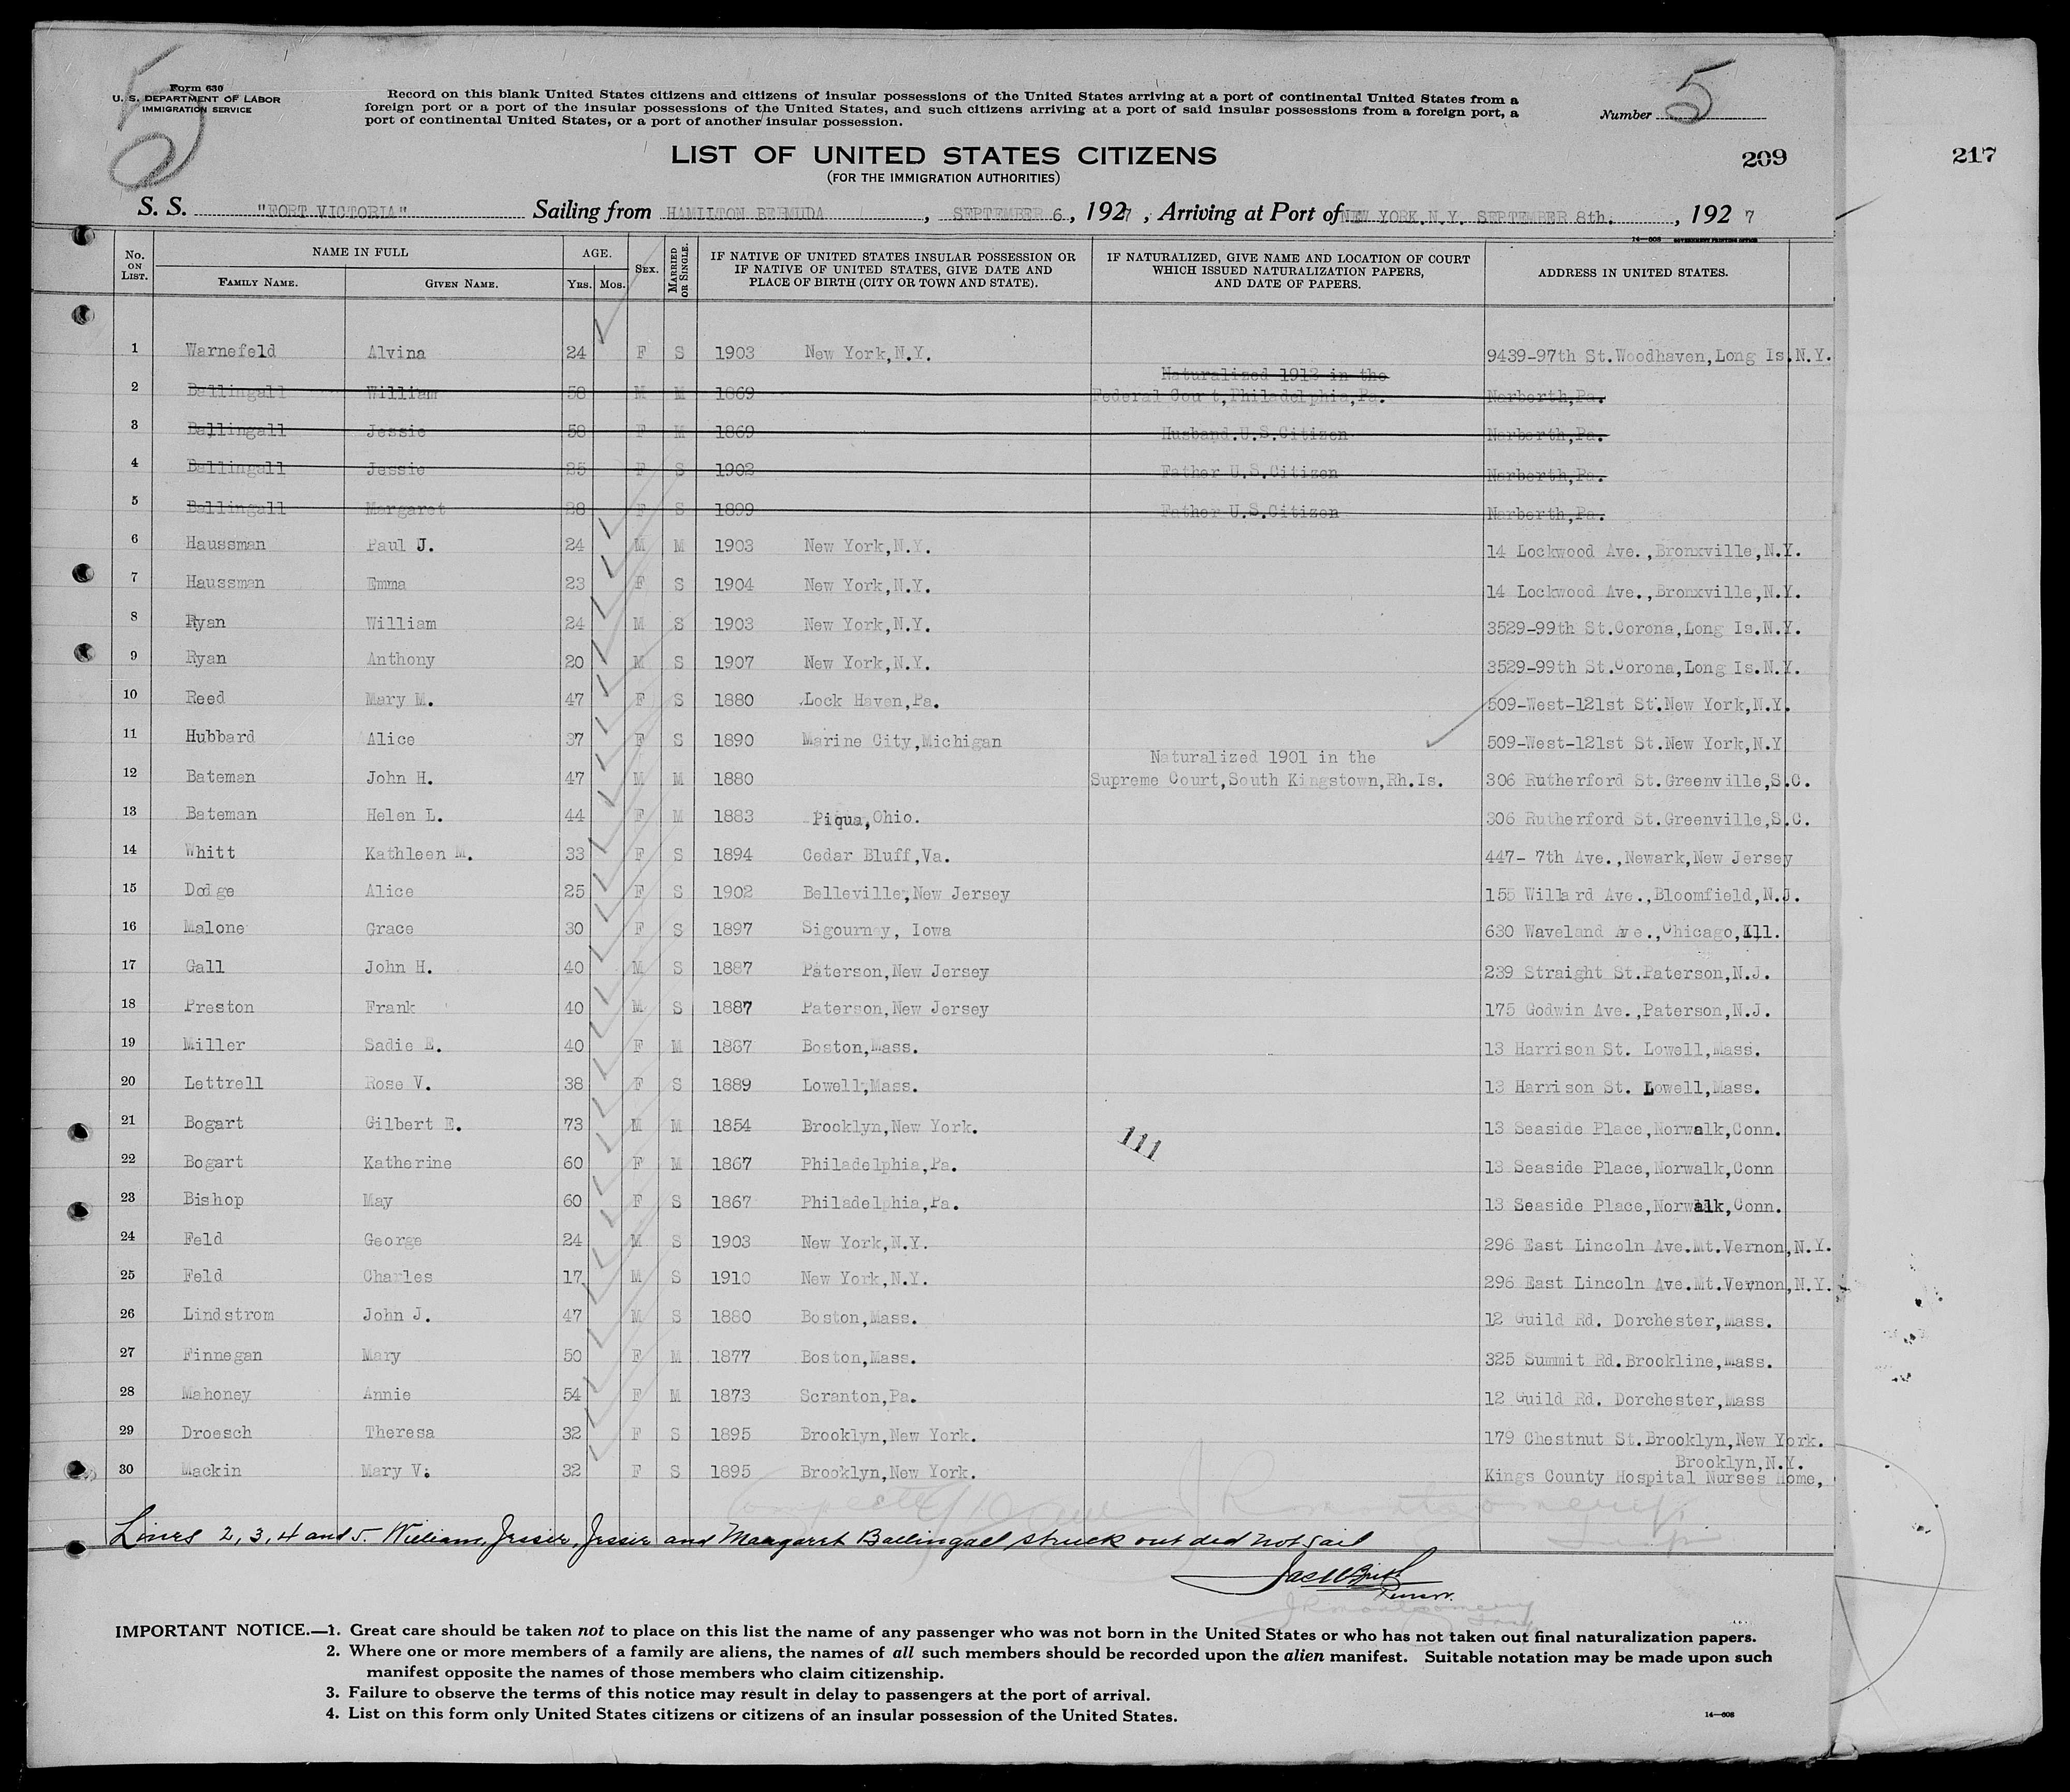 5
Form 630
U. S. DEPARTMENT OF LABOR
IMMIGRATION SERVICE
Record on this blank United States citizens and citizens of insular possessions of the United States arriving at a port of continental United States from a
foreign port or a port of the insular possessions of the United States, and such citizens arriving at a port of said insular possessions from a foreign port, a
port of continental United States, or a port of another insular possession.
Number 5
LIST OF UNITED STATES CITIZENS
(FOR THE IMMIGRATION AUTHORITIES)
209
217
S. S. "FORT VICTORIA" Sailing from HAMILTON BERMUDA , SEPTEMBER 6 , 1927 , Arriving at Port of NEW YORK.N.Y. SEPTEMBER 8th. , 1927
14—608 GOVERNMENT PRINTING OFFICE
No. ON LIST. NAME IN FULL AGE. SEX. MARRIED OR SINGLE. IF NATIVE OF UNITED STATES INSULAR POSSESSION OR IF NATIVE OF UNITED STATES, GIVE DATE AND PLACE OF BIRTH (CITY OR TOWN AND STATE). IF NATURALIZED, GIVE NAME AND LOCATION OF COURT WHICH ISSUED NATURALIZATION PAPERS, AND DATE OF PAPERS. ADDRESS IN UNITED STATES.
FAMILY NAME. GIVEN NAME. YRS. MOS.
1 Warnefeld Alvina 24 F S 1903 New York,N.Y. 9439-97th St.Woodhaven,Long Is.N.Y.
Naturalized 1912 in the
2 Ballingall William 58 M M 1869 Federal Court,Philadelphia,Pa. Narberth,Pa.
3 Ballingall Jessie 58 F M 1869 Husband.U.S.Citizen Narberth,Pa.
4 Ballingall Jessie 25 F S 1902 Father U.S.Citizen Narberth,Pa.
5 Ballingall Margaret 28 F S 1899 Father U.S.Citizen Narberth,Pa.
6 Haussman Paul J. 24 M M 1903 New York,N.Y. 14 Lockwood Ave.,Bronxville,N.Y.
7 Haussman Emma 23 F S 1904 New York,N.Y. 14 Lockwood Ave.,Bronxville,N.Y.
8 Ryan William 24 M S 1903 New York,N.Y. 3529-99th St.Corona,Long Is.N.Y.
9 Ryan Anthony 20 M S 1907 New York,N.Y. 3529-99th St.Corona,Long Is.N.Y.
10 Reed Mary M. 47 F S 1880 Lock Haven,Pa. 509-West-121st St.New York,N.Y.
11 Hubbard Alice 37 F S 1890 Marine City,Michigan 509-West-121st St.New York,N.Y
Naturalized 1901 in the
12 Bateman John H. 47 M M 1880 Supreme Court,South Kingstown,Rh.Is. 306 Rutherford St.Greenville,S.C.
13 Bateman Helen L. 44 F M 1883 Piqua,Ohio. 306 Rutherford St.Greenville,S.C.
14 Whitt Kathleen M. 33 F S 1894 Cedar Bluff,Va. 447- 7th Ave.,Newark,New Jersey
15 Dodge Alice 25 F S 1902 Belleville,New Jersey 155 Willard Ave.,Bloomfield,N.J.
16 Malone Grace 30 F S 1897 Sigourney, Iowa 630 Waveland Ave.,Chicago,Ill.
17 Gall John H. 40 M S 1887 Paterson,New Jersey 239 Straight St.Paterson,N.J.
18 Preston Frank 40 M S 1887 Paterson,New Jersey 175 Godwin Ave.,Paterson,N.J.
19 Miller Sadie E. 40 F M 1887 Boston,Mass. 13 Harrison St. Lowell,Mass.
20 Lettrell Rose V. 38 F S 1889 Lowell,Mass. 13 Harrison St. Lowell,Mass.
21 Bogart Gilbert E. 73 M M 1854 Brooklyn,New York. 13 Seaside Place,Norwalk,Conn.
111
22 Bogart Katherine 60 F M 1867 Philadelphia,Pa. 13 Seaside Place,Norwalk,Conn
23 Bishop May 60 F S 1867 Philadelphia,Pa. 13 Seaside Place,Norwalk,Conn.
24 Feld George 24 M S 1903 New York,N.Y. 296 East Lincoln Ave.Mt.Vernon,N.Y.
25 Feld Charles 17 M S 1910 New York,N.Y. 296 East Lincoln Ave.Mt.Vernon,N.Y.
26 Lindstrom John J. 47 M S 1880 Boston,Mass. 12 Guild Rd. Dorchester,Mass.
27 Finnegan Mary 50 F M 1877 Boston,Mass. 325 Summit Rd.Brookline,Mass.
28 Mahoney Annie 54 F M 1873 Scranton,Pa. 12 Guild Rd. Dorchester,Mass
29 Droesch Theresa 32 F S 1895 Brooklyn,New York. 179 Chestnut St.Brooklyn,New York.
Brooklyn,N.Y.
30 Mackin Mary V. 32 F S 1895 Brooklyn,New York. Kings County Hospital Nurses Home,
Lines 2, 3, 4 and 5. William, Jessie, Jessie and Margaret Ballingall struck out did not sail
IMPORTANT NOTICE.—1. Great care should be taken not to place on this list the name of any passenger who was not born in the United States or who has not taken out final naturalization papers.
2. Where one or more members of a family are aliens, the names of all such members should be recorded upon the alien manifest. Suitable notation may be made upon such
manifest opposite the names of those members who claim citizenship.
3. Failure to observe the terms of this notice may result in delay to passengers at the port of arrival.
4. List on this form only United States citizens or citizens of an insular possession of the United States.
14—608